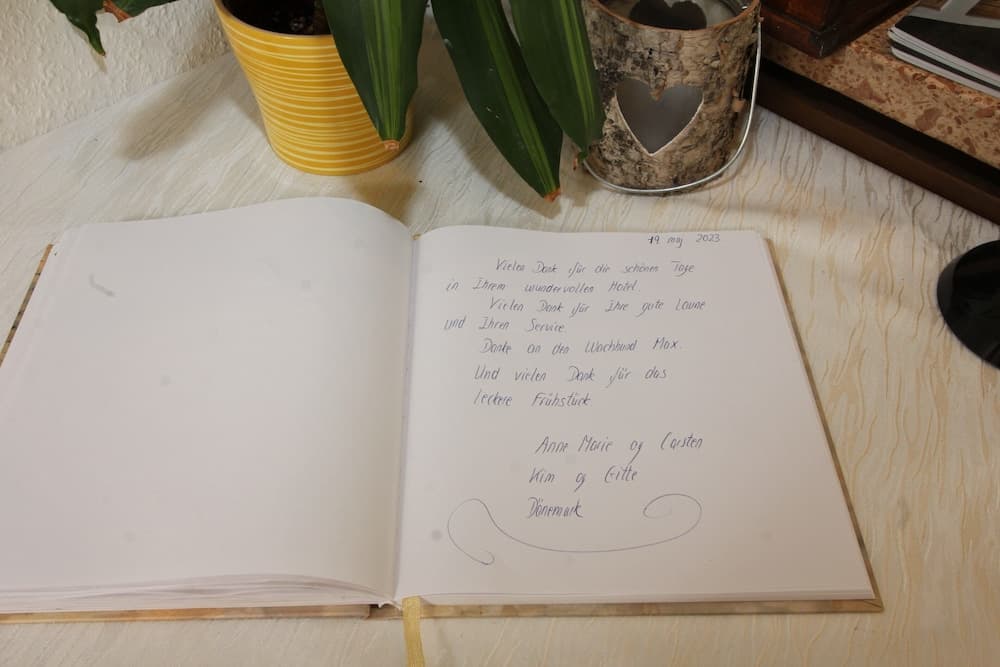 19 maj 2023
Vielen Dank für die schönen Tage
in Ihrem wundervollen Hotel.
Vielen Dank für Ihre gute Laune
und Ihren Service.
Danke an den Wachhund Max.
Und vielen Dank für das
leckere Frühstück.
Anne Marie og Carsten
Kim og Gitte
Dänemark